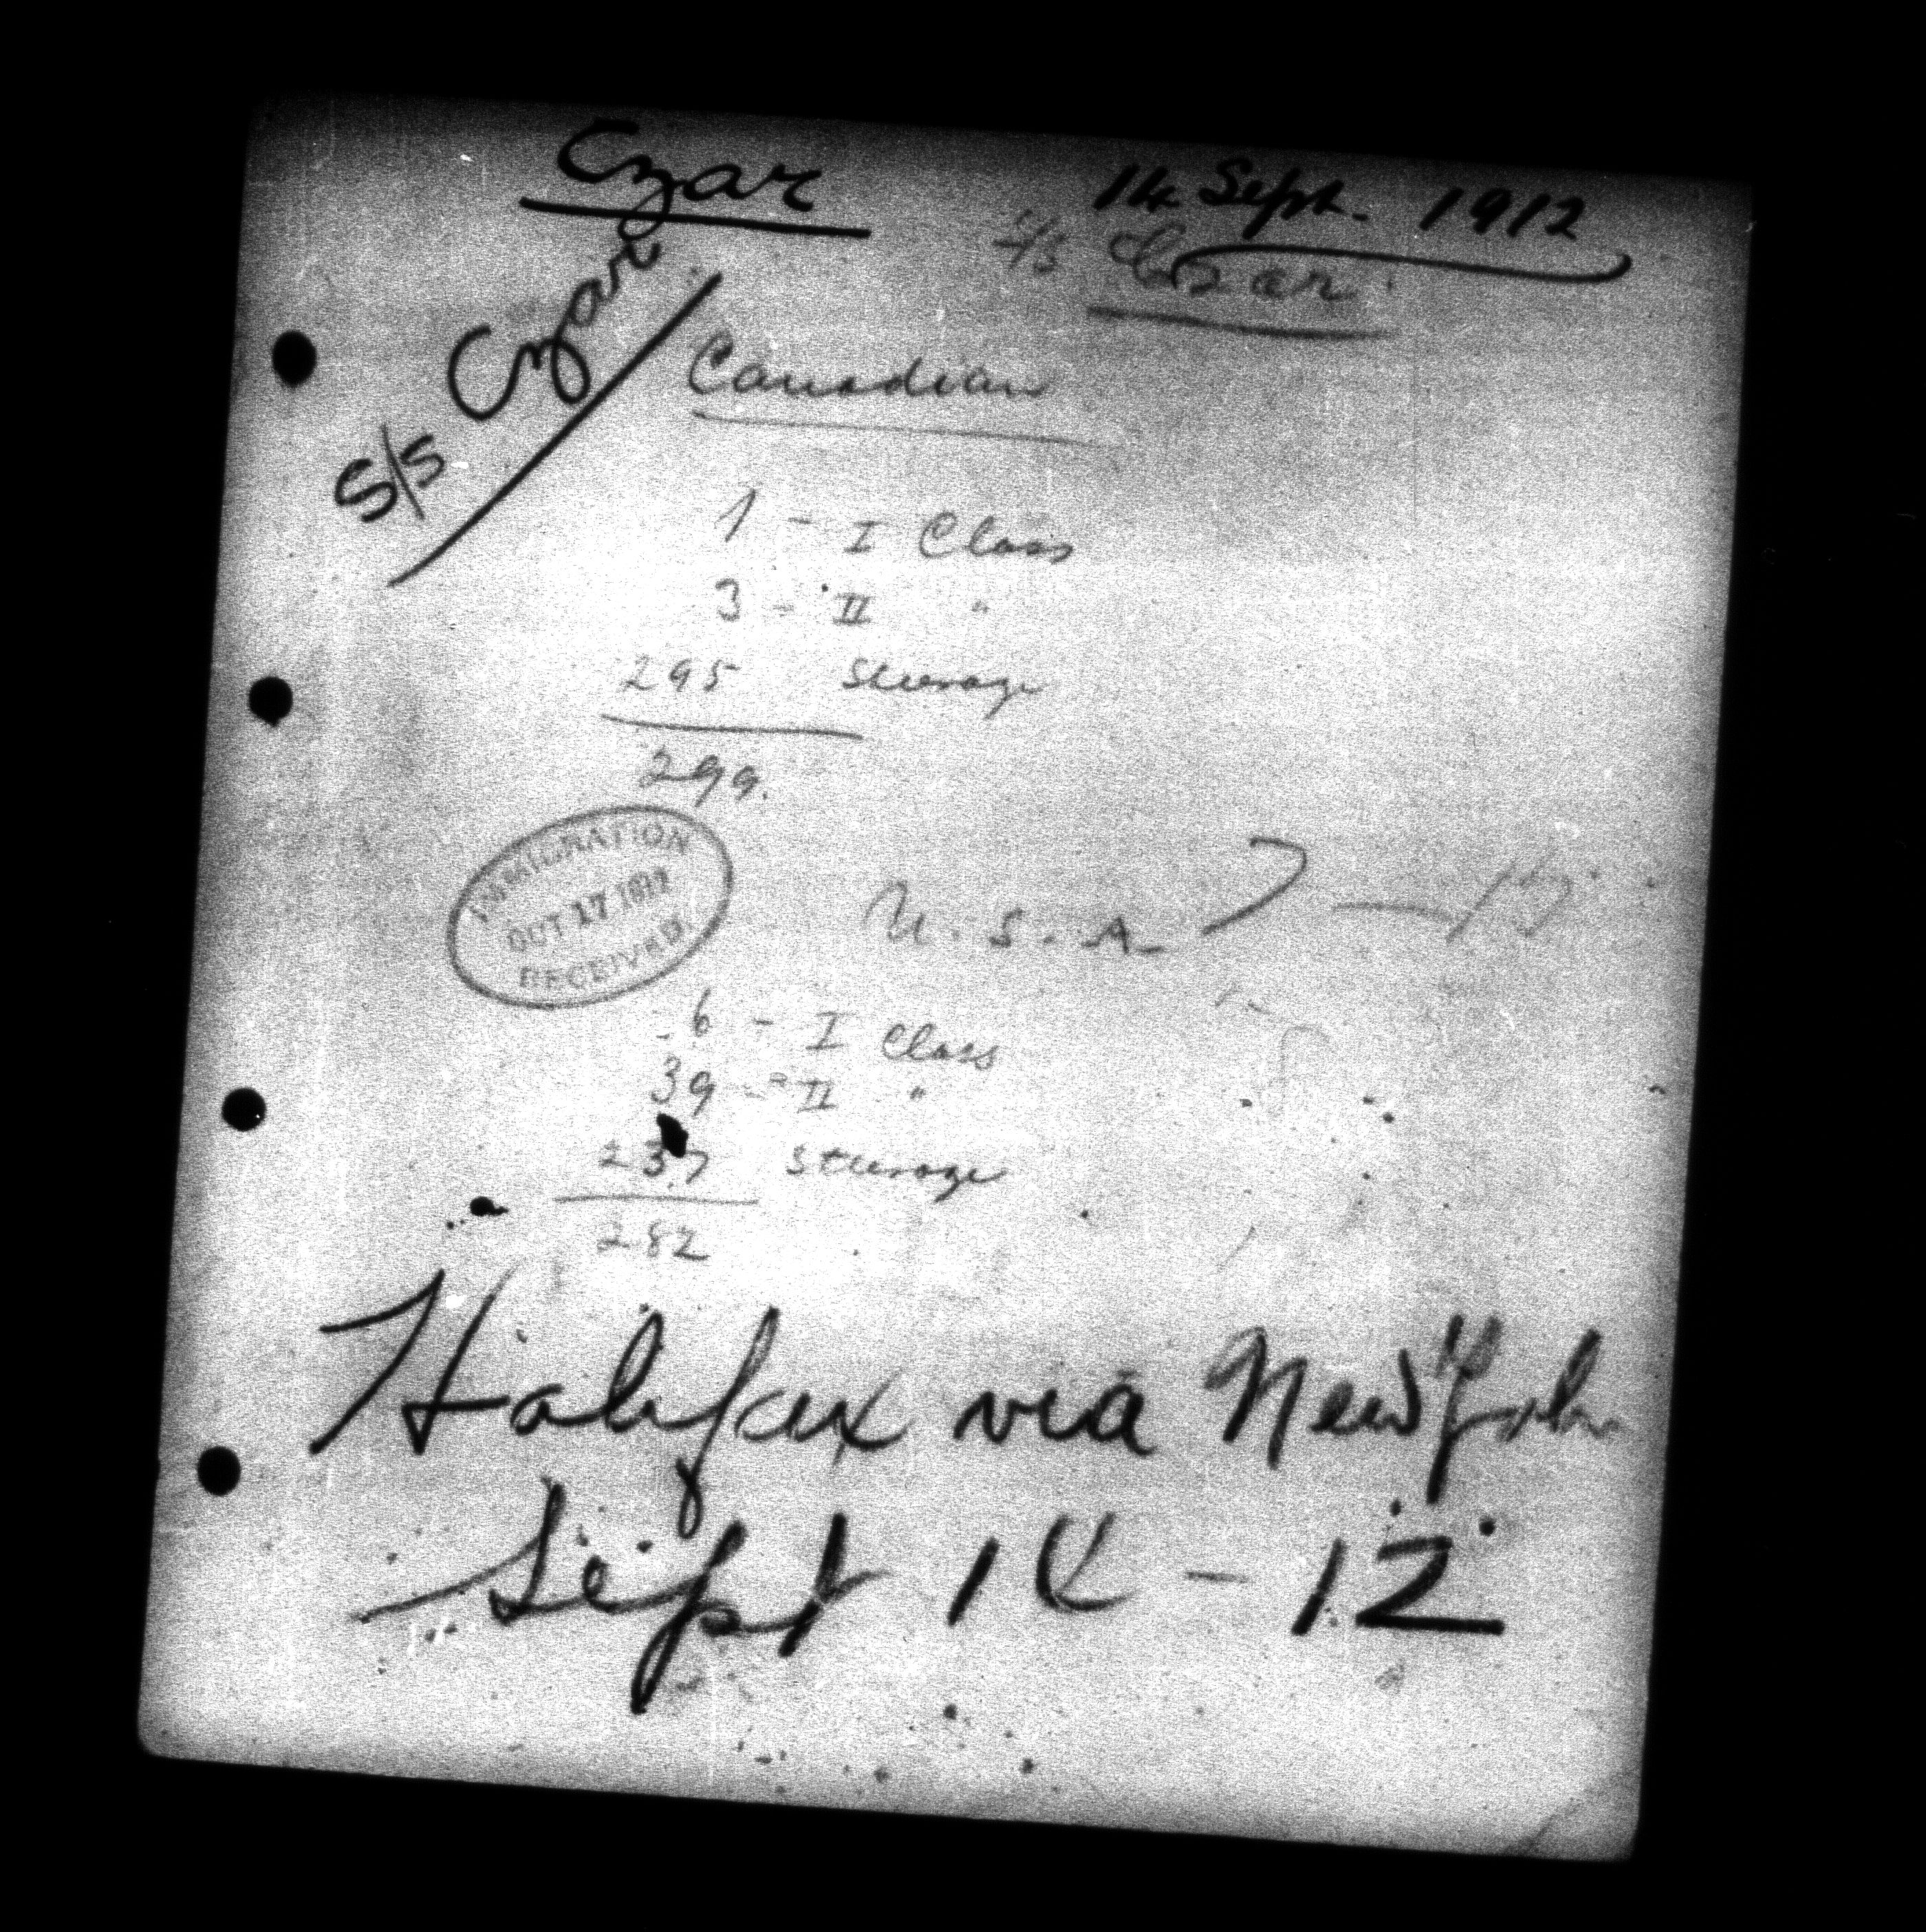 Czar
14 Sept. 1912
S/S Czar
S/S Czar
Canadian
1 - I Class
3 - II "
295 Steerage
299.
IMMIGRATION
OCT 17 1912
RECEIVED.
U.S.A.
6 - I Class
39 - II "
237 Steerage
282
Halifax via New York
Sept 14 - 12